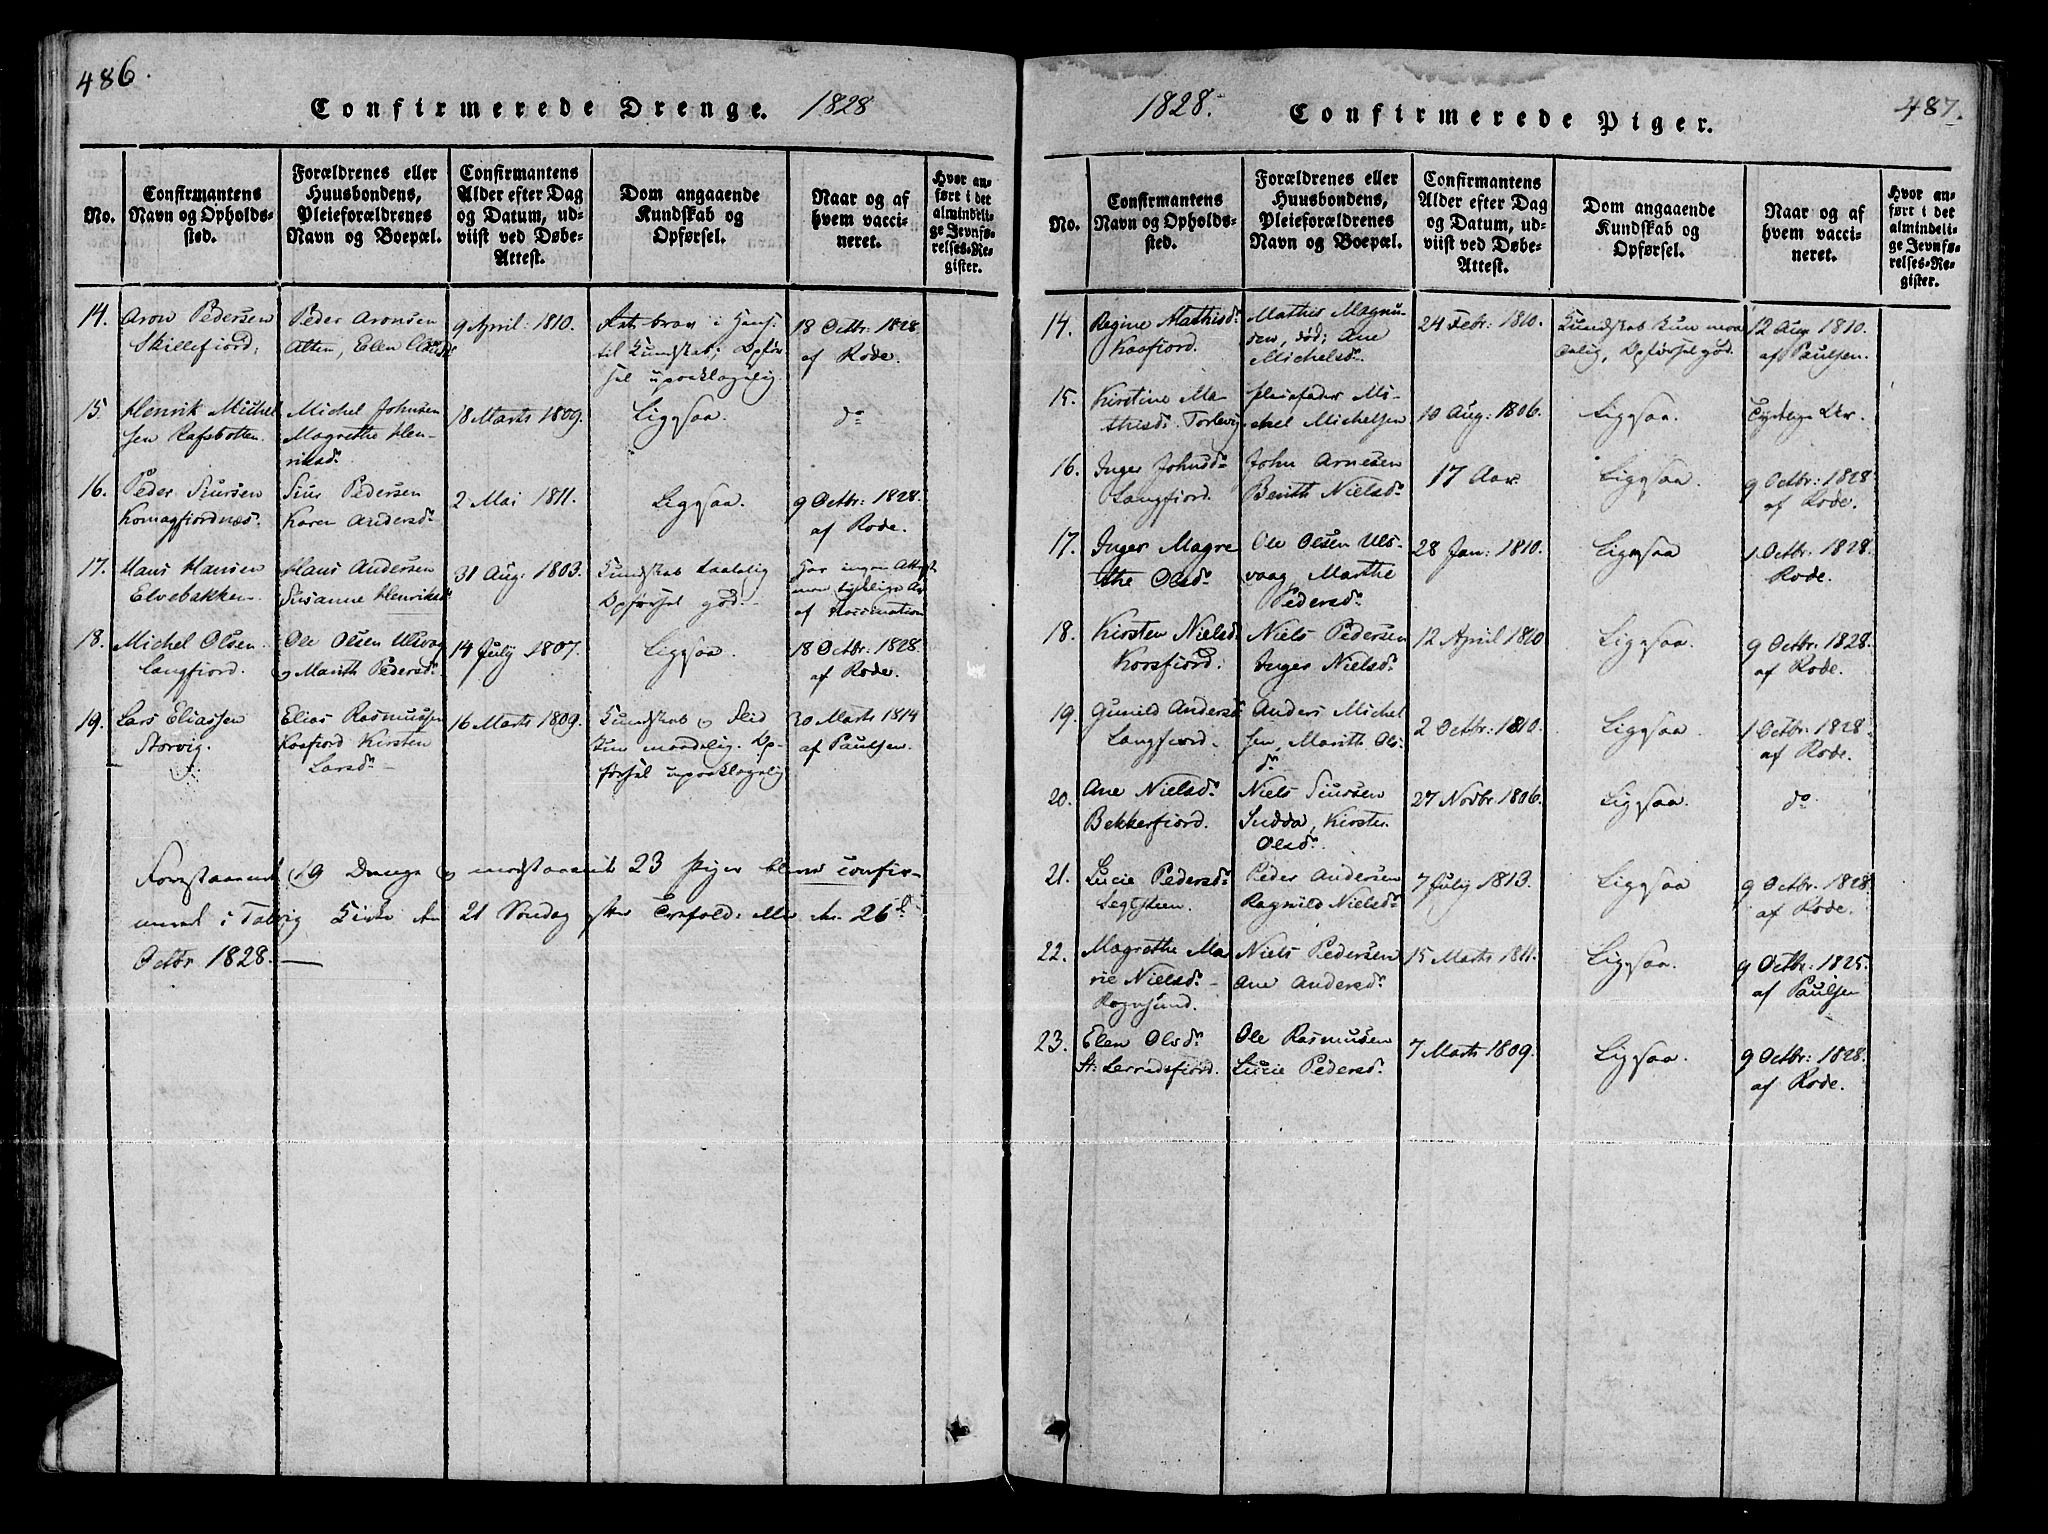 486.
Confirmerede Drenge. 1828
No.
Confirmantens
Navn og Opholds-
sted.
Forældrenes eller
Huusbondens,
Pleieforældrenes
Navn og Boepæl.
Confirmantens
Alder efter Dag
og Datum, ud-
viist ved Døbe-
Attest.
Dom angaaende
Kundskab og
Opførsel.
Naar og af
hvem vacci-
neret.
Hvor an-
ført i det
almindeli-
ge Jevnfø-
relses-Re-
gister.
14. Aron Pedersen
Skillefiord.
Peder Aronsen
Alten, Elen
9 April: 1810.
brav i
til Kundskab; Opfør
sel upaaklagelig.
18 Octbr: 1828
af Rode.
15. Henrik Michel
sen Rafsbotten.
Michel Johnsen
Magrethe Hen-
riksdr.
18 Marts 1809.
Ligesaa.
do
16. Peder Siursen
Komagfiordnæs.
Siur Pedersen
Karen Andersdr.
2 Mai 1811.
Ligesaa.
9 Octbr: 1828.
af Rode.
17. Hans Hansen
Elvebakken.
Hans Andersen
Susanne Henriksdr.
31 Aug: 1803.
Kundskab taalelig
Opførsel god.
Har ingen Attest
men tydelige Ar
af Vaccination
18. Michel Olsen
Langfiord.
Ole Olsen Ulsvog
og Marith Pedersdr.
14 July 1807.
Ligesaa.
18 Octbr: 1828.
af Rode.
19. Lars Eliassen
Storvig.
Elias Rasmussen
Kaafiord Kirsten
Larsdr.
16 Marts 1809.
Kundskab og Flid
kun maadelig. Op-
førsel upaaklagelig
30 Marts 1814
af Paulsen.
Forestaaende 19 Drenge og modstaaende 23 Piger bleve confir-
merede i Talvig Kirke den 21 Søndag efter Trefold: eller den 26de
Octbr 1828.
1828. Confirmerede Piger. 487.
No.
Confirmantens
Navn og Opholds-
sted.
Forældrenes eller
Huusbondens,
Pleieforældrenes
Navn og Boepæl.
Confirmantens
Alder efter Dag
og Datum, ud-
viist ved Døbe-
Attest.
Dom angaaende
Kundskab og
Opførsel.
Naar og af
hvem vacci-
neret.
Hvor an-
ført i det
almindeli-
ge Jevnfø-
relses-Re-
gister.
14. Regine Mathisdr.
Kaafiord.
Mathis Magnu-
sen, død; Ane
Michelsdr.
24 Febr: 1810.
Kundskab kun maa
delig, Opførsel god.
12 Aug 1810.
af Paulsen.
15. Kirstine Ma-
thisdr. Torlevig
Pleiefader Mi-
chel Michelsen
10 Aug: 1806.
Ligesaa.
Tydelige Ar.
16. Inger Johnsdr.
Langfiord.
John Arnesen
Berith Nielsdr.
17 Aar
Ligesaa.
9 Octbr: 1828
af Rode.
17. Inger Magre
the Olsdr.
Ole Olsen Uls-
vaag, Marthe
Pedersdr.
28 Jan: 1810.
Ligesaa
1 Octbr: 1828.
Rode.
18. Kirsten Nielsd.
Korsfiord.
Niels Pedersen
Inger Nielsdr.
12 April 1810
Ligesaa.
9 Octbr: 1828.
af Rode.
19. Gunild Anders
Langfiord.
Anders Michel
sen, Marith Ols-
dr
2 Octbr: 1810.
Ligesaa.
1 Octbr: 1828
af Rode.
20. Ane Nielsdr.
Bekkerfiord.
Niels Siursen
Sudda, Kirsten
Olsdr.
27 Novbr. 1806.
Ligesaa.
do
21. Lucie Pedersdr.
Legesteen.
Peder Andersen
Ragnild Nielsdr.
7 July 1813.
Ligesaa
9 Octbr: 1828.
af Rode.
22. Magrethe Ma
rie Nielsdr.
Rognsund.
Niels Pedersen
Ane Andersdr.
15 Marts 1811.
Ligesaa.
9 Octbr: 1825.
af Paulsen
23. Elen Olsdr.
St: Lerredsfiord.
Ole Rasmussen
Lucie Pedersdr.
7 Marts 1809.
Ligesaa.
9 Octbr: 1828.
af Rode.